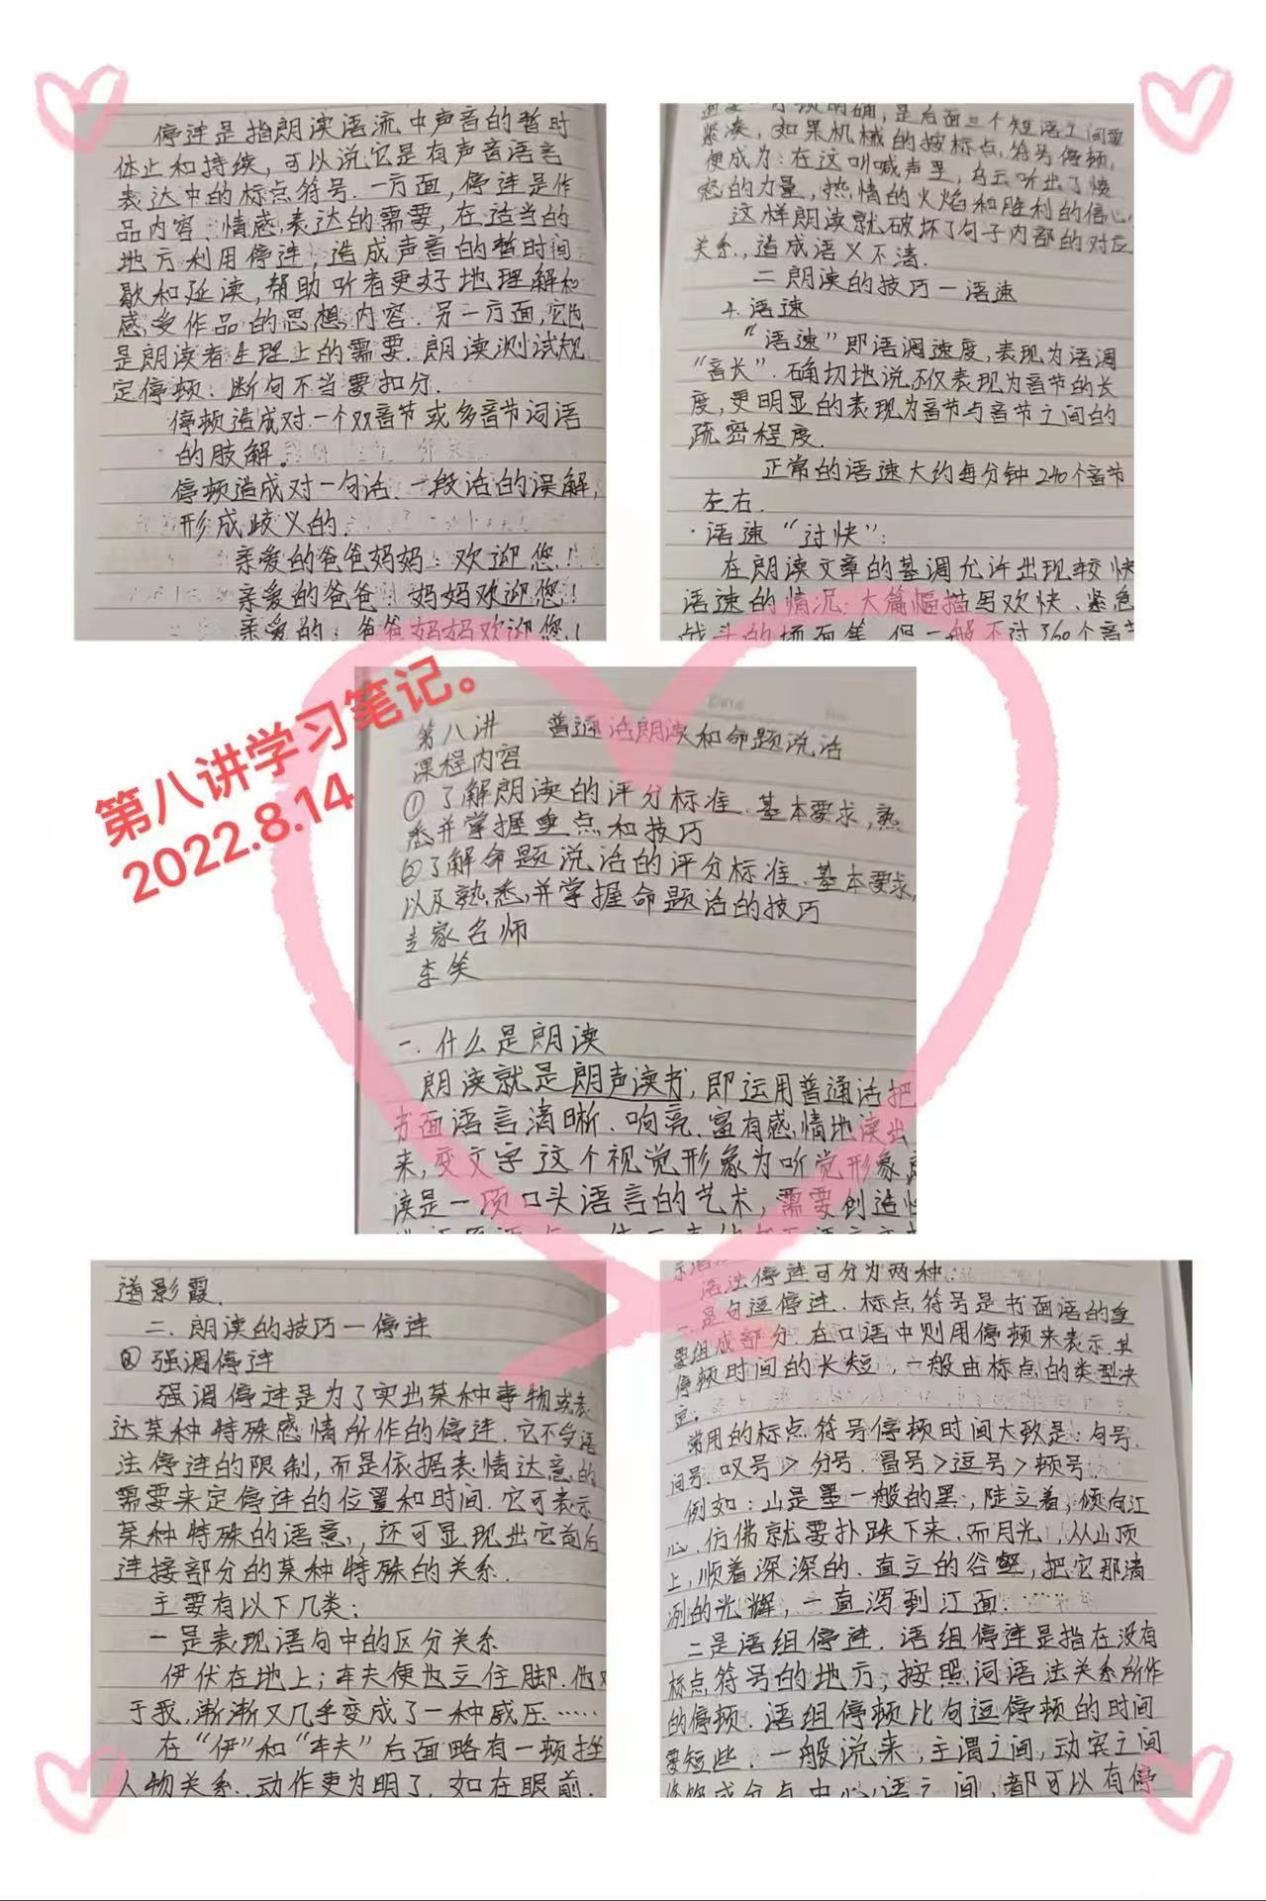 停连是指朗读语流中声音的暂时
休止和持续,可以说它是有声音语言
表达中的标点符号.一方面,停连是作
品内容、情感,表达的需要,在适当的
地方利用停连,造成声音的暂时间
歇和延读,帮助听者更好地理解和
感受作品的思想内容.另一方面,它也
是朗读者生理上的需要.朗读测试规
定停顿:断句不当要扣分.
停顿造成对一个双音节或多音节词语
的肢解。
停顿造成对一句话.一段话的误解,
形成歧义的.
亲爱的爸爸妈妈:欢迎您!
亲爱的爸爸:妈妈欢迎您!
亲爱的:爸爸妈妈欢迎您!
明确,是后面三个短语之间要
紧凑,如果机械的按标点,符号停顿,
便成为:在这叫喊声里,乌云听出了愤
怒的力量,热情的火焰和胜利的信心
这样朗读就破坏了句子内部的对应
关系,造成语义不清.
二 朗读的技巧一语速
4.语速
“语速”即语调速度,表现为语调
“音长”.确切地说不仅表现为音节的长
度,更明显的表现为音节与音节之间的
疏密程度.
正常的语速大约每分钟240个音节
左右.
·语速“过快”:
在朗读文章的基调允许出现较快
语速的情况:大篇幅描写欢快、紧急
战斗的场面等,但一般不过360个音节
第八讲学习笔记。
2022.8.14
第八讲 普通话朗读和命题说话
课程内容
①了解朗读的评分标准.基本要求,熟
悉并掌握重点和技巧
②了解命题说话的评分标准.基本要求,
以及熟悉,并掌握命题话的技巧
专家名师
李笑
一.什么是朗读
朗读就是朗声读书,即运用普通话把
书面语言清晰.响亮.富有感情地读出
来,变文字这个视觉形象为听觉形象
读是一项口头语言的艺术,需要创造性
道影霞.
二.朗读的技巧一停连
②强调停连
强调停连是为了突出某种事物或表
达某种特殊感情所作的停连.它不受语
法停连的限制,而是依据表情达意的
需要来定停连的位置和时间.它可表示
某种特殊的语意,还可显现出它前后
连接部分的某种特殊的关系.
主要有以下几类:
一是表现语句中的区分关系
伊伏在地上;车夫便也立住脚.他对
于我,渐渐又几乎变成了一种威压……
在“伊”和“车夫”后面略有一顿挫
人物关系.动作更为明了.如在眼前.
语法停连可分为两种:
一是句逗停连.标点符号是书面语的重
要组成部分.在口语中则用停顿来表示.其
停顿时间的长短,一般由标点的类型决
定.
常用的标点符号停顿时间大致是:句号.
问号.叹号>分号.冒号>逗号>顿号.
例如:山是墨一般的黑,陡立着,倾向江
心.仿佛就要扑跌下来.而月光,从山顶
上,顺着深深的.直立的谷壑,把它那清
冽的光辉,一直泻到江面.
二是语组停连.语组停连是指在没有
标点符号的地方,按照词语法关系所作
的停顿.语组停顿比句逗停顿的时间
要短些.一般说来,主谓之间,动宾之间
修饰成分与中心语之间,都可以有停